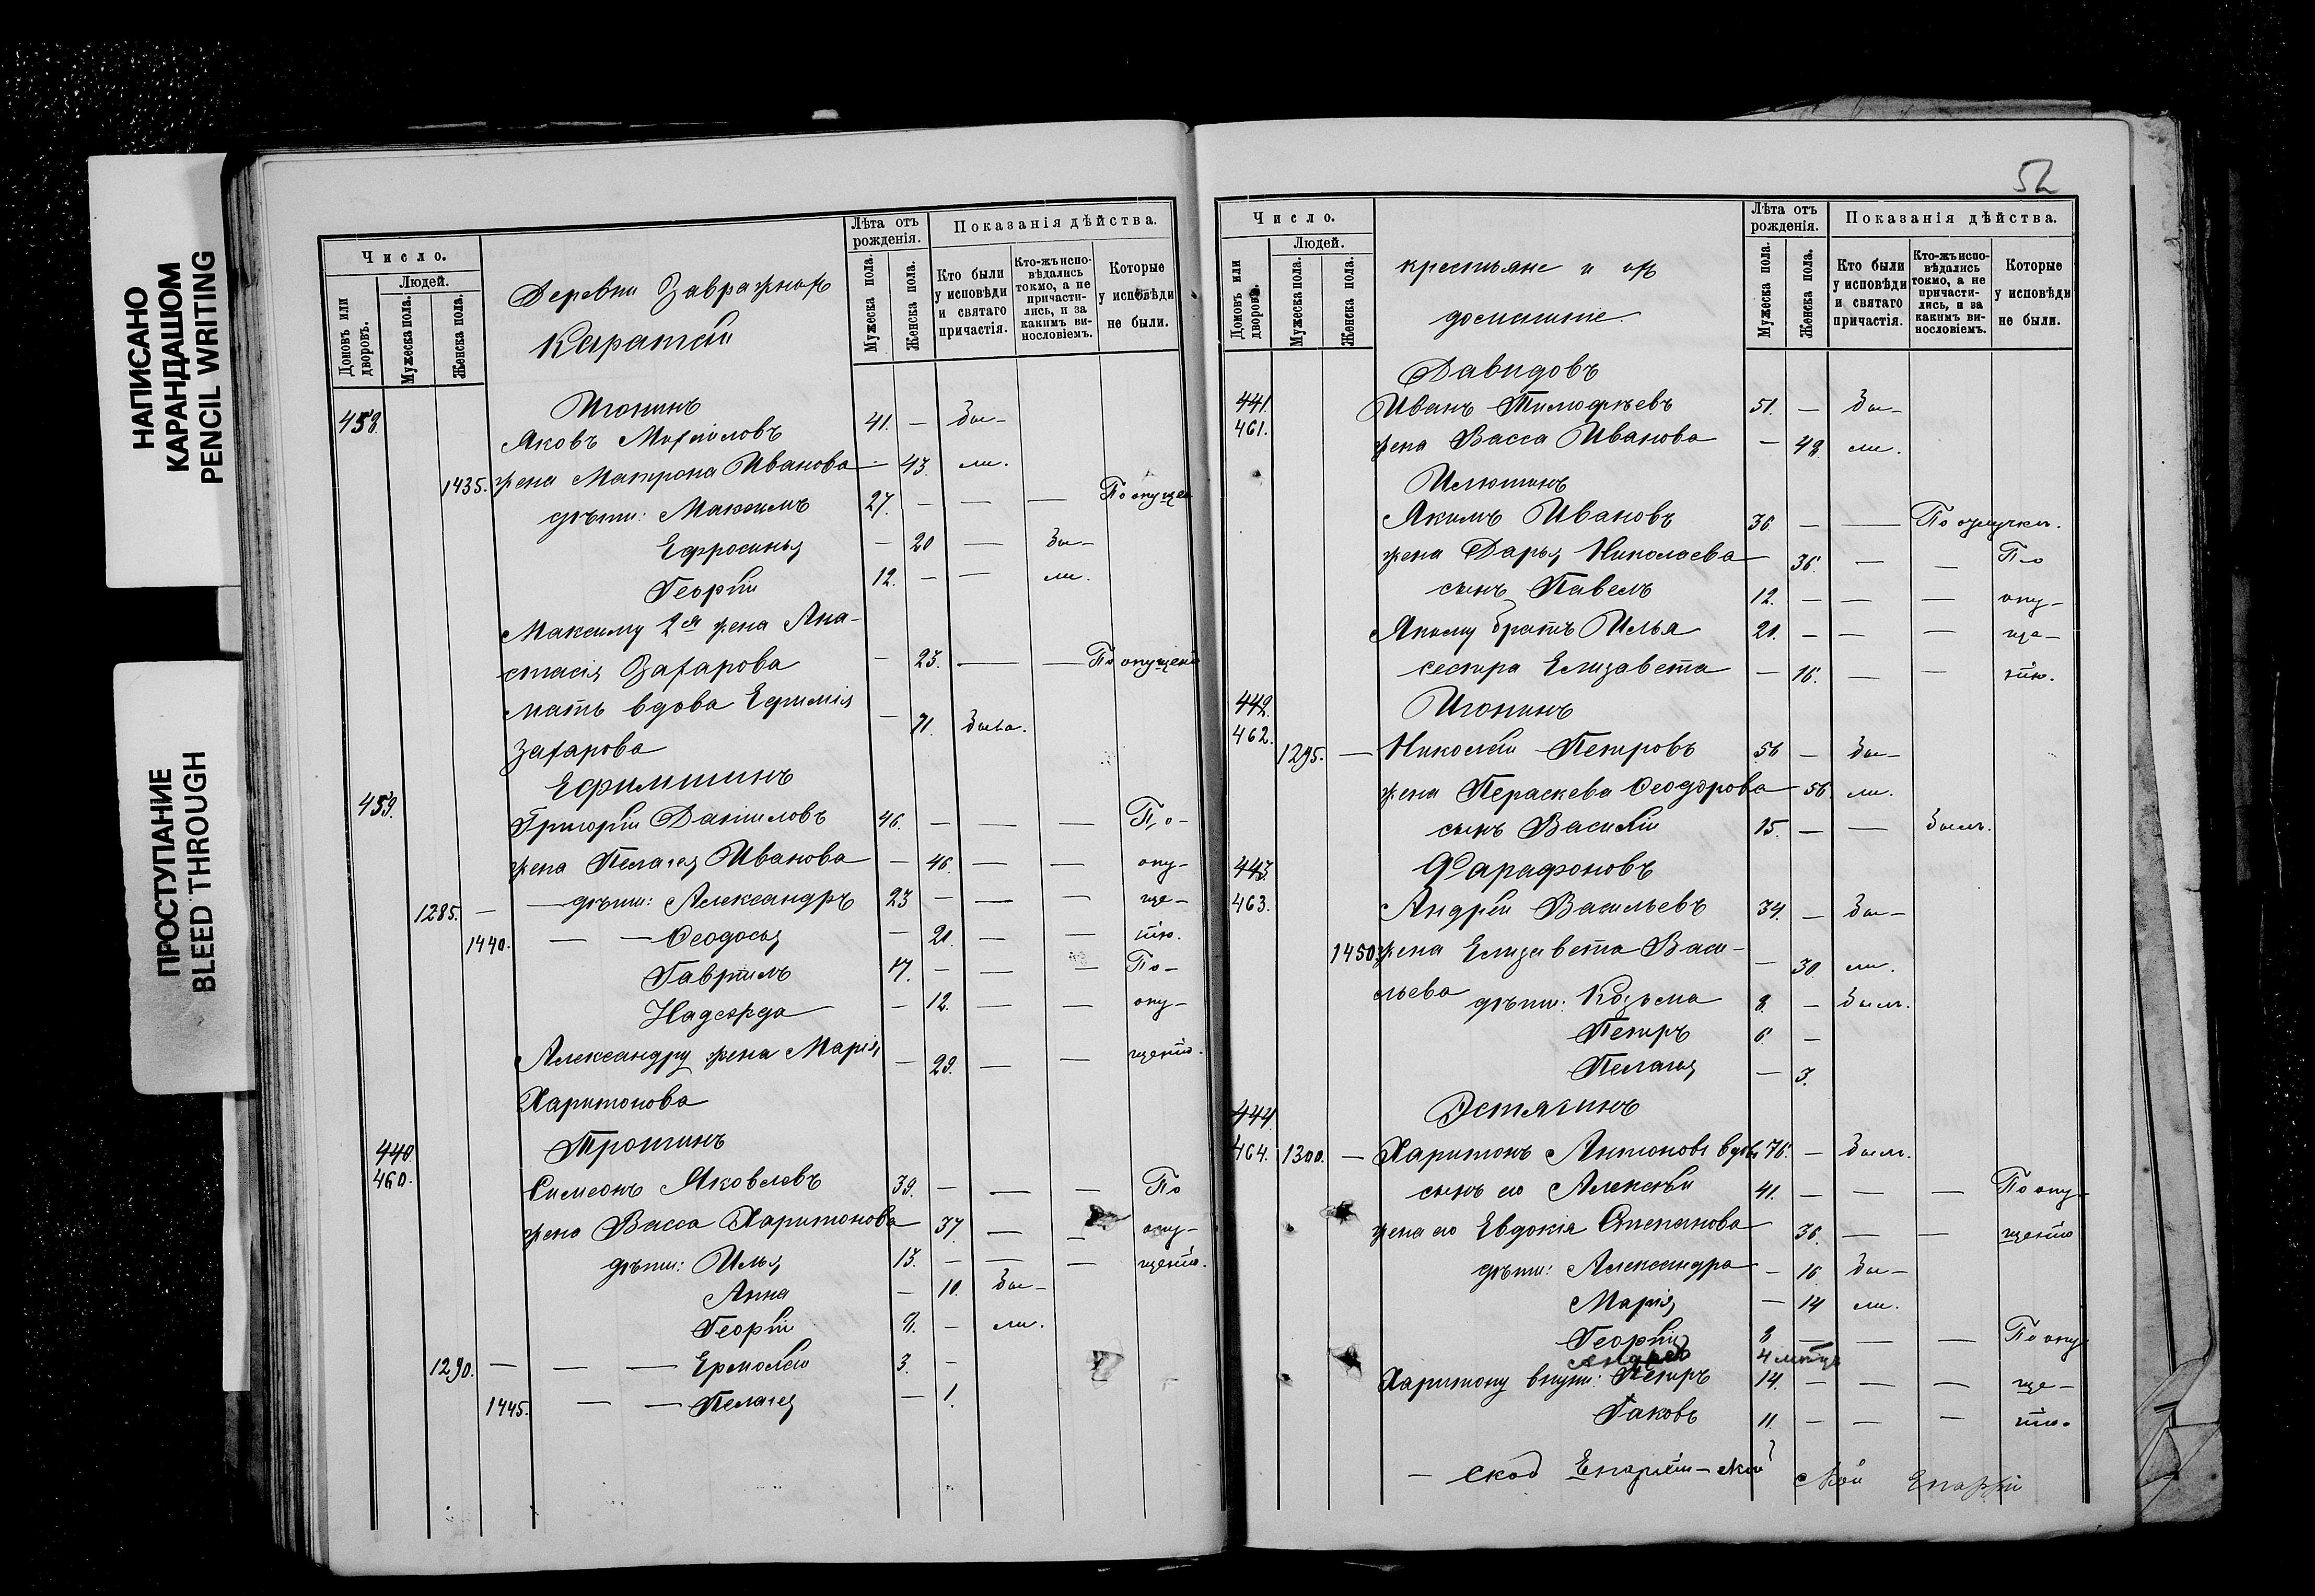 НАПИСАНО
КАРАНДАШОМ
PENCIL WRITING
ПРОСТУПАНИЕ
BLEED THROUGH
Число.
Людей.
Домовъ или дворовъ.
Мужеска пола.
Женска пола.
Деревни Завражнаго
Каратай
Лѣта отъ рожденія.
Мужеска пола.
Женска пола.
Показанія дѣйства.
Кто были у исповѣди и святаго причастія.
Кто-жъ исповѣдались токмо, а не причастились, и за какимъ винословіемъ.
Которые у исповѣди не были.
Игонинъ
458. Яковъ 41. — Бы-
1435. жена Матрона Иванова — 43. ли.
дѣти: Максимъ 27. — — — По опущен
Ефросинья — 20 — Бы-
Георгій 12. — — ли.
Максиму 2ая жена Ана-
стасія Захарова — 23. — — По опущенію
мать вдова Ефимія — 71. была.
Захарова
Ефимшинъ
459. Григорій Даніиловъ 46. — — — По-
жена Пелагея Иванова — 46. — — опу-
1285. — — дѣти: Александръ 23 — — — ще-
1440. — — Ѳеодосья — 20. — — нію.
Гавріилъ 17. — — — По-
Надежда — 12. — — опу-
Александру жена Марія — 23. — — щенію.
Харитонова
440 Трошинъ
460. Симеонъ Яковлевъ 39. — — — По
жена Васса Харитонова 37. — — опу-
дѣти: Илья 13. — — — щенію.
Анна — 10. Бы-
Георгій 9. — ли.
1290. — — — Ермолай 3. —
1445. — — Пелагея — 1.
52
Число.
Людей.
Домовъ или дворовъ.
Мужеска пола.
Женска пола.
крестьяне и ихъ
домашніе
Лѣта отъ рожденія.
Мужеска пола.
Женска пола.
Показанія дѣйства.
Кто были у исповѣди и святаго причастія.
Кто-жъ исповѣдались токмо, а не причастились, и за какимъ винословіемъ.
Которые у исповѣди не были.
Давидовъ
441. Иванъ Тимофѣевъ 51. — Бы-
461. жена Васса Иванова — 48. ли.
Илюшинъ
Якимъ Ивановъ 36 — — По отлучкѣ.
жена Дарья Николаева 36. — — По
сынъ Павелъ 12. — — — опу-
Якиму братъ Илья 20. — — — ще-
сестра Елизавета — 16. — — нію.
442. Игонинъ
462. 1295. — Николай Петровъ 56 — Бы-
жена Параскева Ѳеодорова 56. ли.
сынъ Василій 15. — — былъ.
443. Фарафоновъ
463. Андрей Васильевъ 34. — Бы-
1450 жена Елизавета Васи- — 30. ли.
льева дѣти: Козьма 8. — былъ.
Петръ 6. —
Пелагея — 3.
444.
464. 1300. — Харитонъ Антоновъ вдовъ 76. — былъ.
сынъ его Алексѣй 41. — — — По опу-
жена его Евдокія Степанова 36. — — щенію
дѣти: Александра — 16. Бы-
Марія — 14 ли.
Георгій 8 — — — По опу
Андрей 4 мѣсяц
Харитону внуки: Петръ 14. — — — ще-
Іаковъ 11. — — — нію.
— ской Епархіи —
Епархі